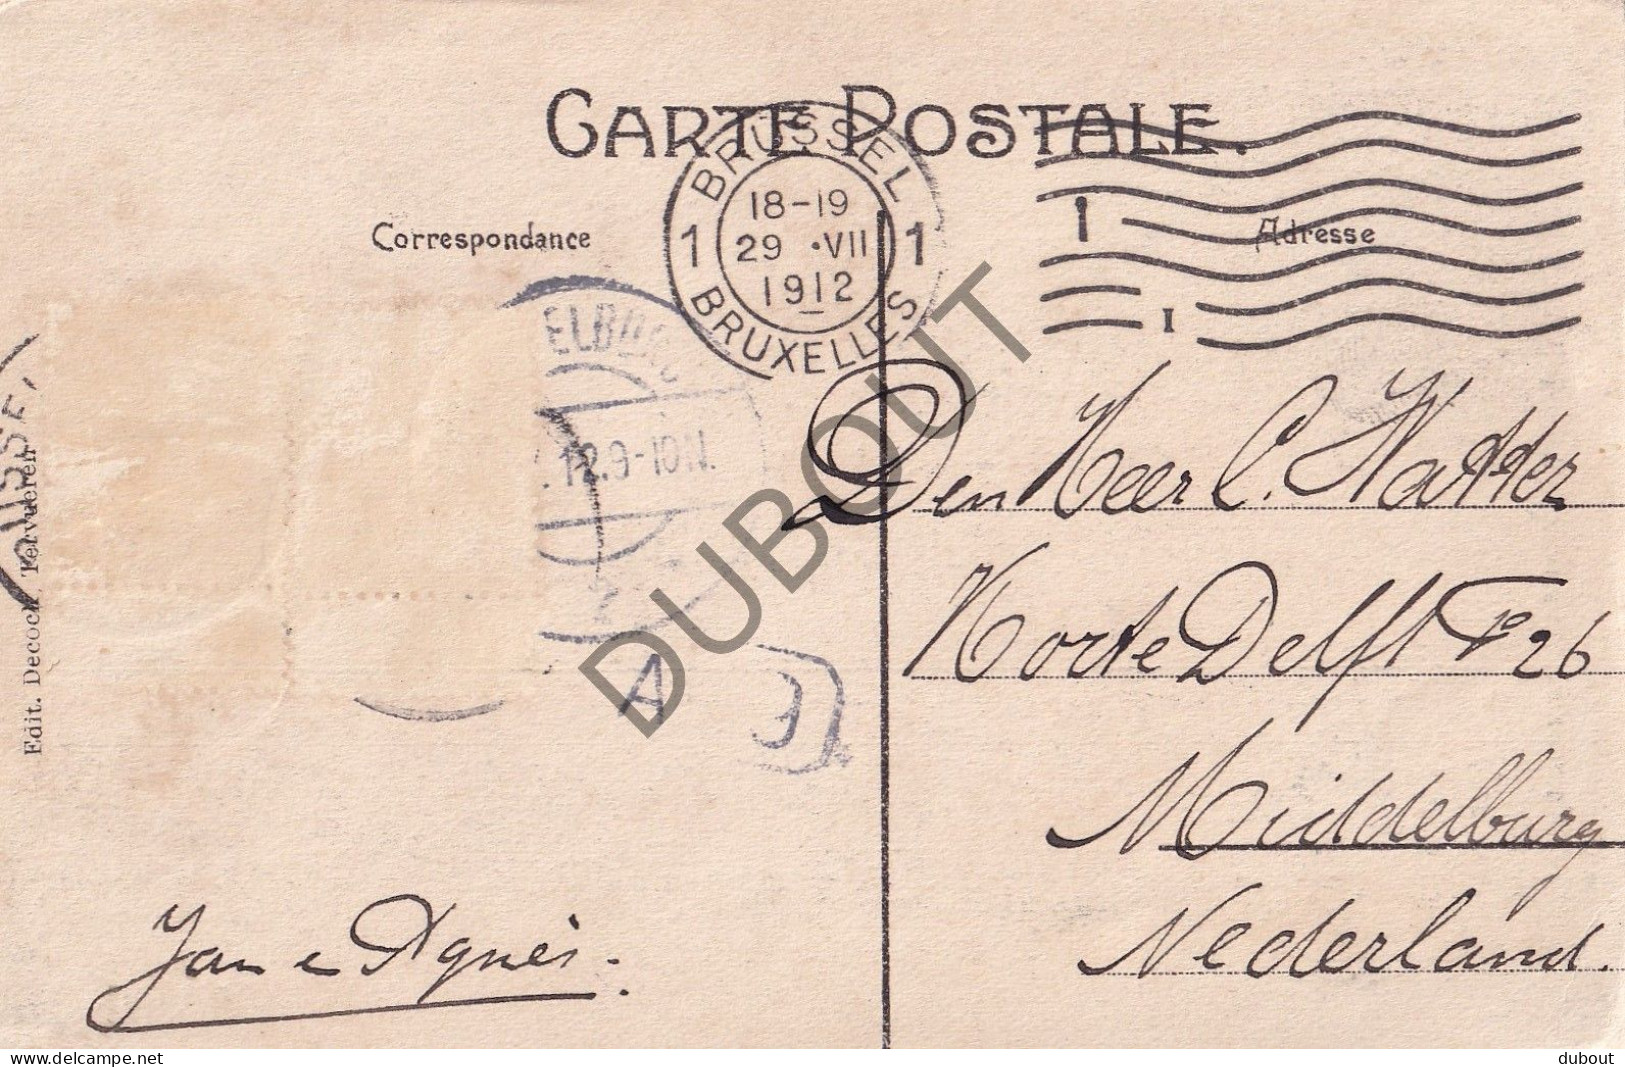 CARTE POSTALE.
BRUSSEL
18-19
1 29 •VII 1
1912
BRUXELLES
1
I
Correspondance
Adresse
ELBU
12.9-10 N.
USSE
Edit. Decock Tervueren
A
Den Heer C.
Korte Delft 26
Middelburg
Nederland.
Jan e Agnès.
DUBOUT
www.delcampe.net
dubout